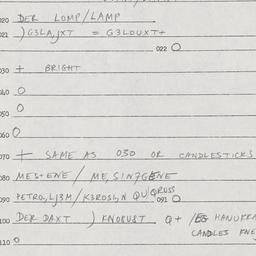 020 DER LOMP/LAMP
021 )G3LA,JXT = G3LOUXT+
022 O
030 + BRIGHT
040 O
050 O
060 O
070 + SAME AS 030 OR CANDLESTICKS
080 MES+ENE / ME,SIN7GENE
090 PETRO,LJ3M/K3ROSI,N QU QRUSS
091 O
100 DER DAXT )KNORUST Q+ / HANUKKA
CANDLES KNE
110 O